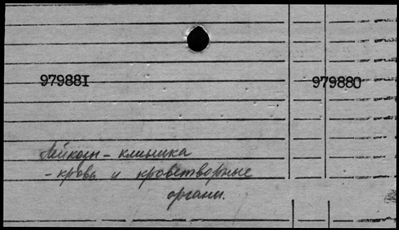 979881 979880
Лейкозы - клиника
- кровь и кроветворные
органы.